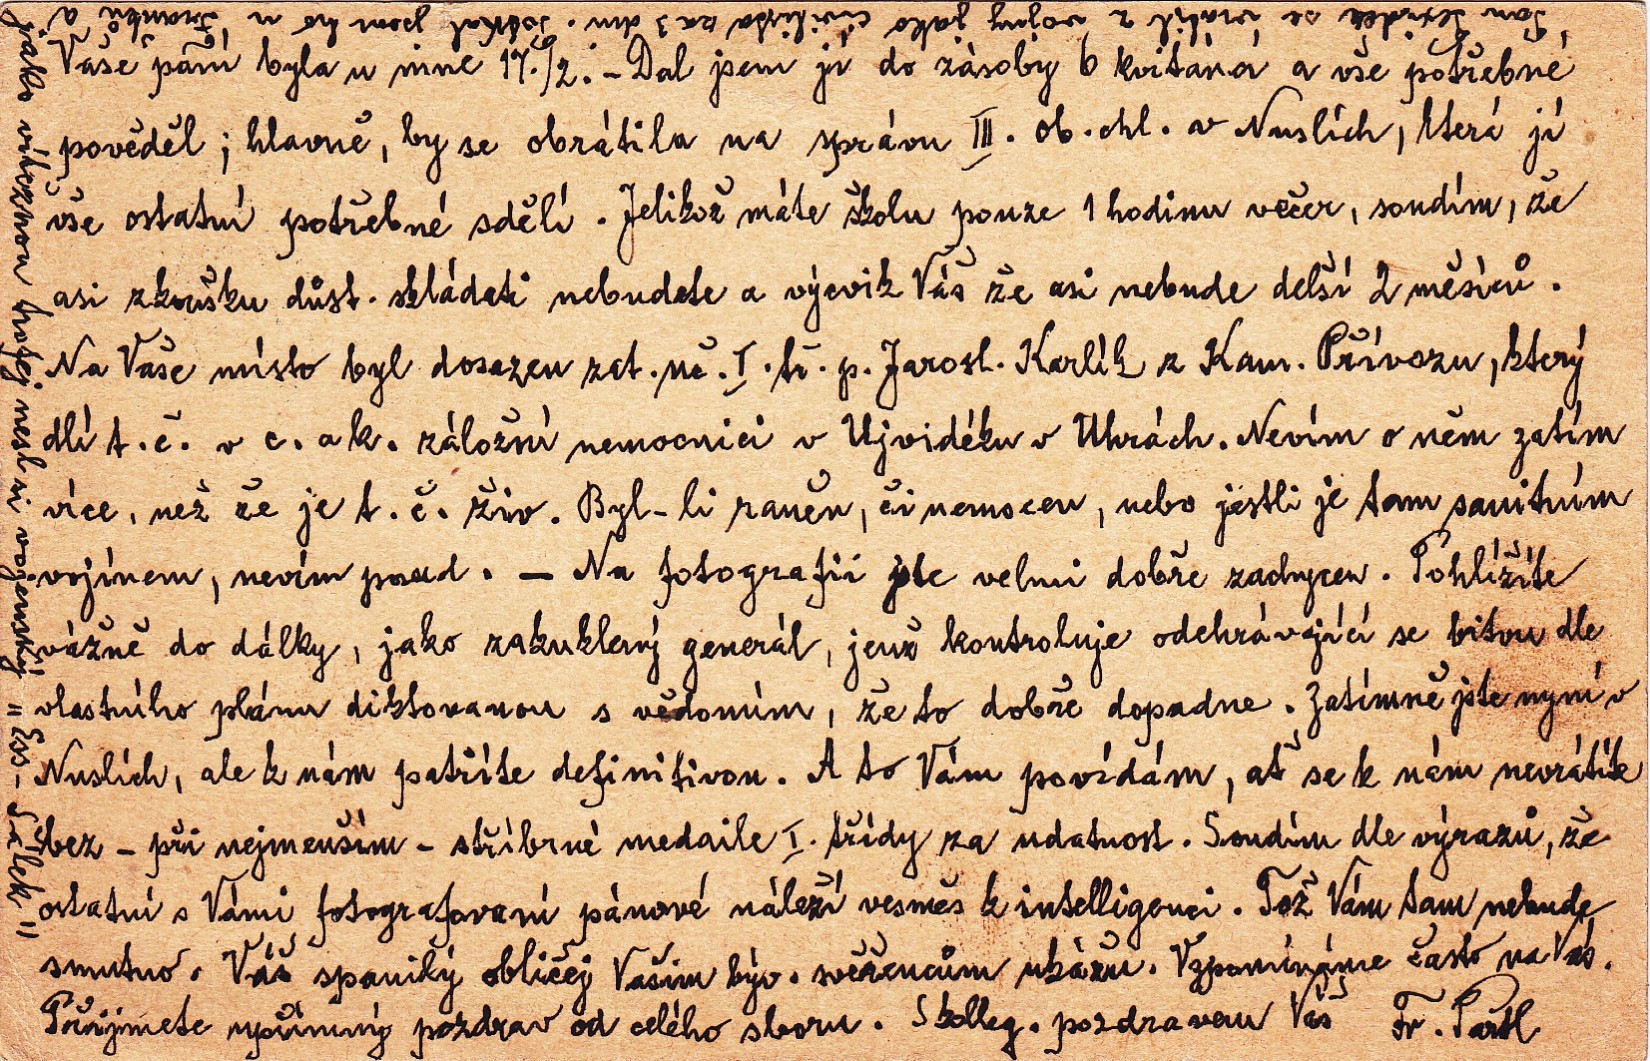 Vaše paní byla u mne 17./2. – Dal jsem jí do zásoby 6 kvitancí a vše potřebné
pověděl; hlavně, by se obrátila na správu III. ob. chl. v Nuslích, která jí
vše ostatní potřebné sdělí. Jelikož máte školu pouze 1 hodinu večer, soudím, že
asi zkoušku důst. skládati nebudete a výcvik Váš že asi nebude delší 2 měsíců.
Na Vaše místo byl dosazen zat. uč. I. tř. p. Jarosl. Karlík z Kam. Přívozu, který
dlí t. č. v c. a k. záložní nemocnici v Ujvidéku v Uhrách. Nevím o něm zatím
více, než že je t. č. živ. Byl-li raněn, či nemocen, nebo jestli je tam sanitním
vojínem, nevím posud. – Na fotografii jste velmi dobře zachycen. Pohlížíte
vážně do dálky, jako zakuklený generál, jenž kontroluje odehrávející se bitvu dle
vlastního plánu diktovanou s vědomím, že to dobře dopadne. Zatímně jste nyní v
Nuslích, ale k nám patříte definitivou. A to Vám povídám, ať se k nám nevrátíte
bez – při nejmenším – stříbrné medaile I. třídy za udatnost. Soudím dle výrazů, že
ostatní s Vámi fotografovaní pánové náleží vesměs k intelligenci. Tož Vám tam nebude
smutno. Váš spanilý obličej Vašim býv. svěřencům ukážu. Vzpomínáme často na Vás.
Přijmete upřímný pozdrav od celého sboru. S kolleg. pozdravem Váš Fr. Partl
Pan se vrátil z vojny jako civilista za 3 dni. Potkal jsem ho u Franků a
jako vítěznou trofej nesl si vojenský "Ess-Šálek"